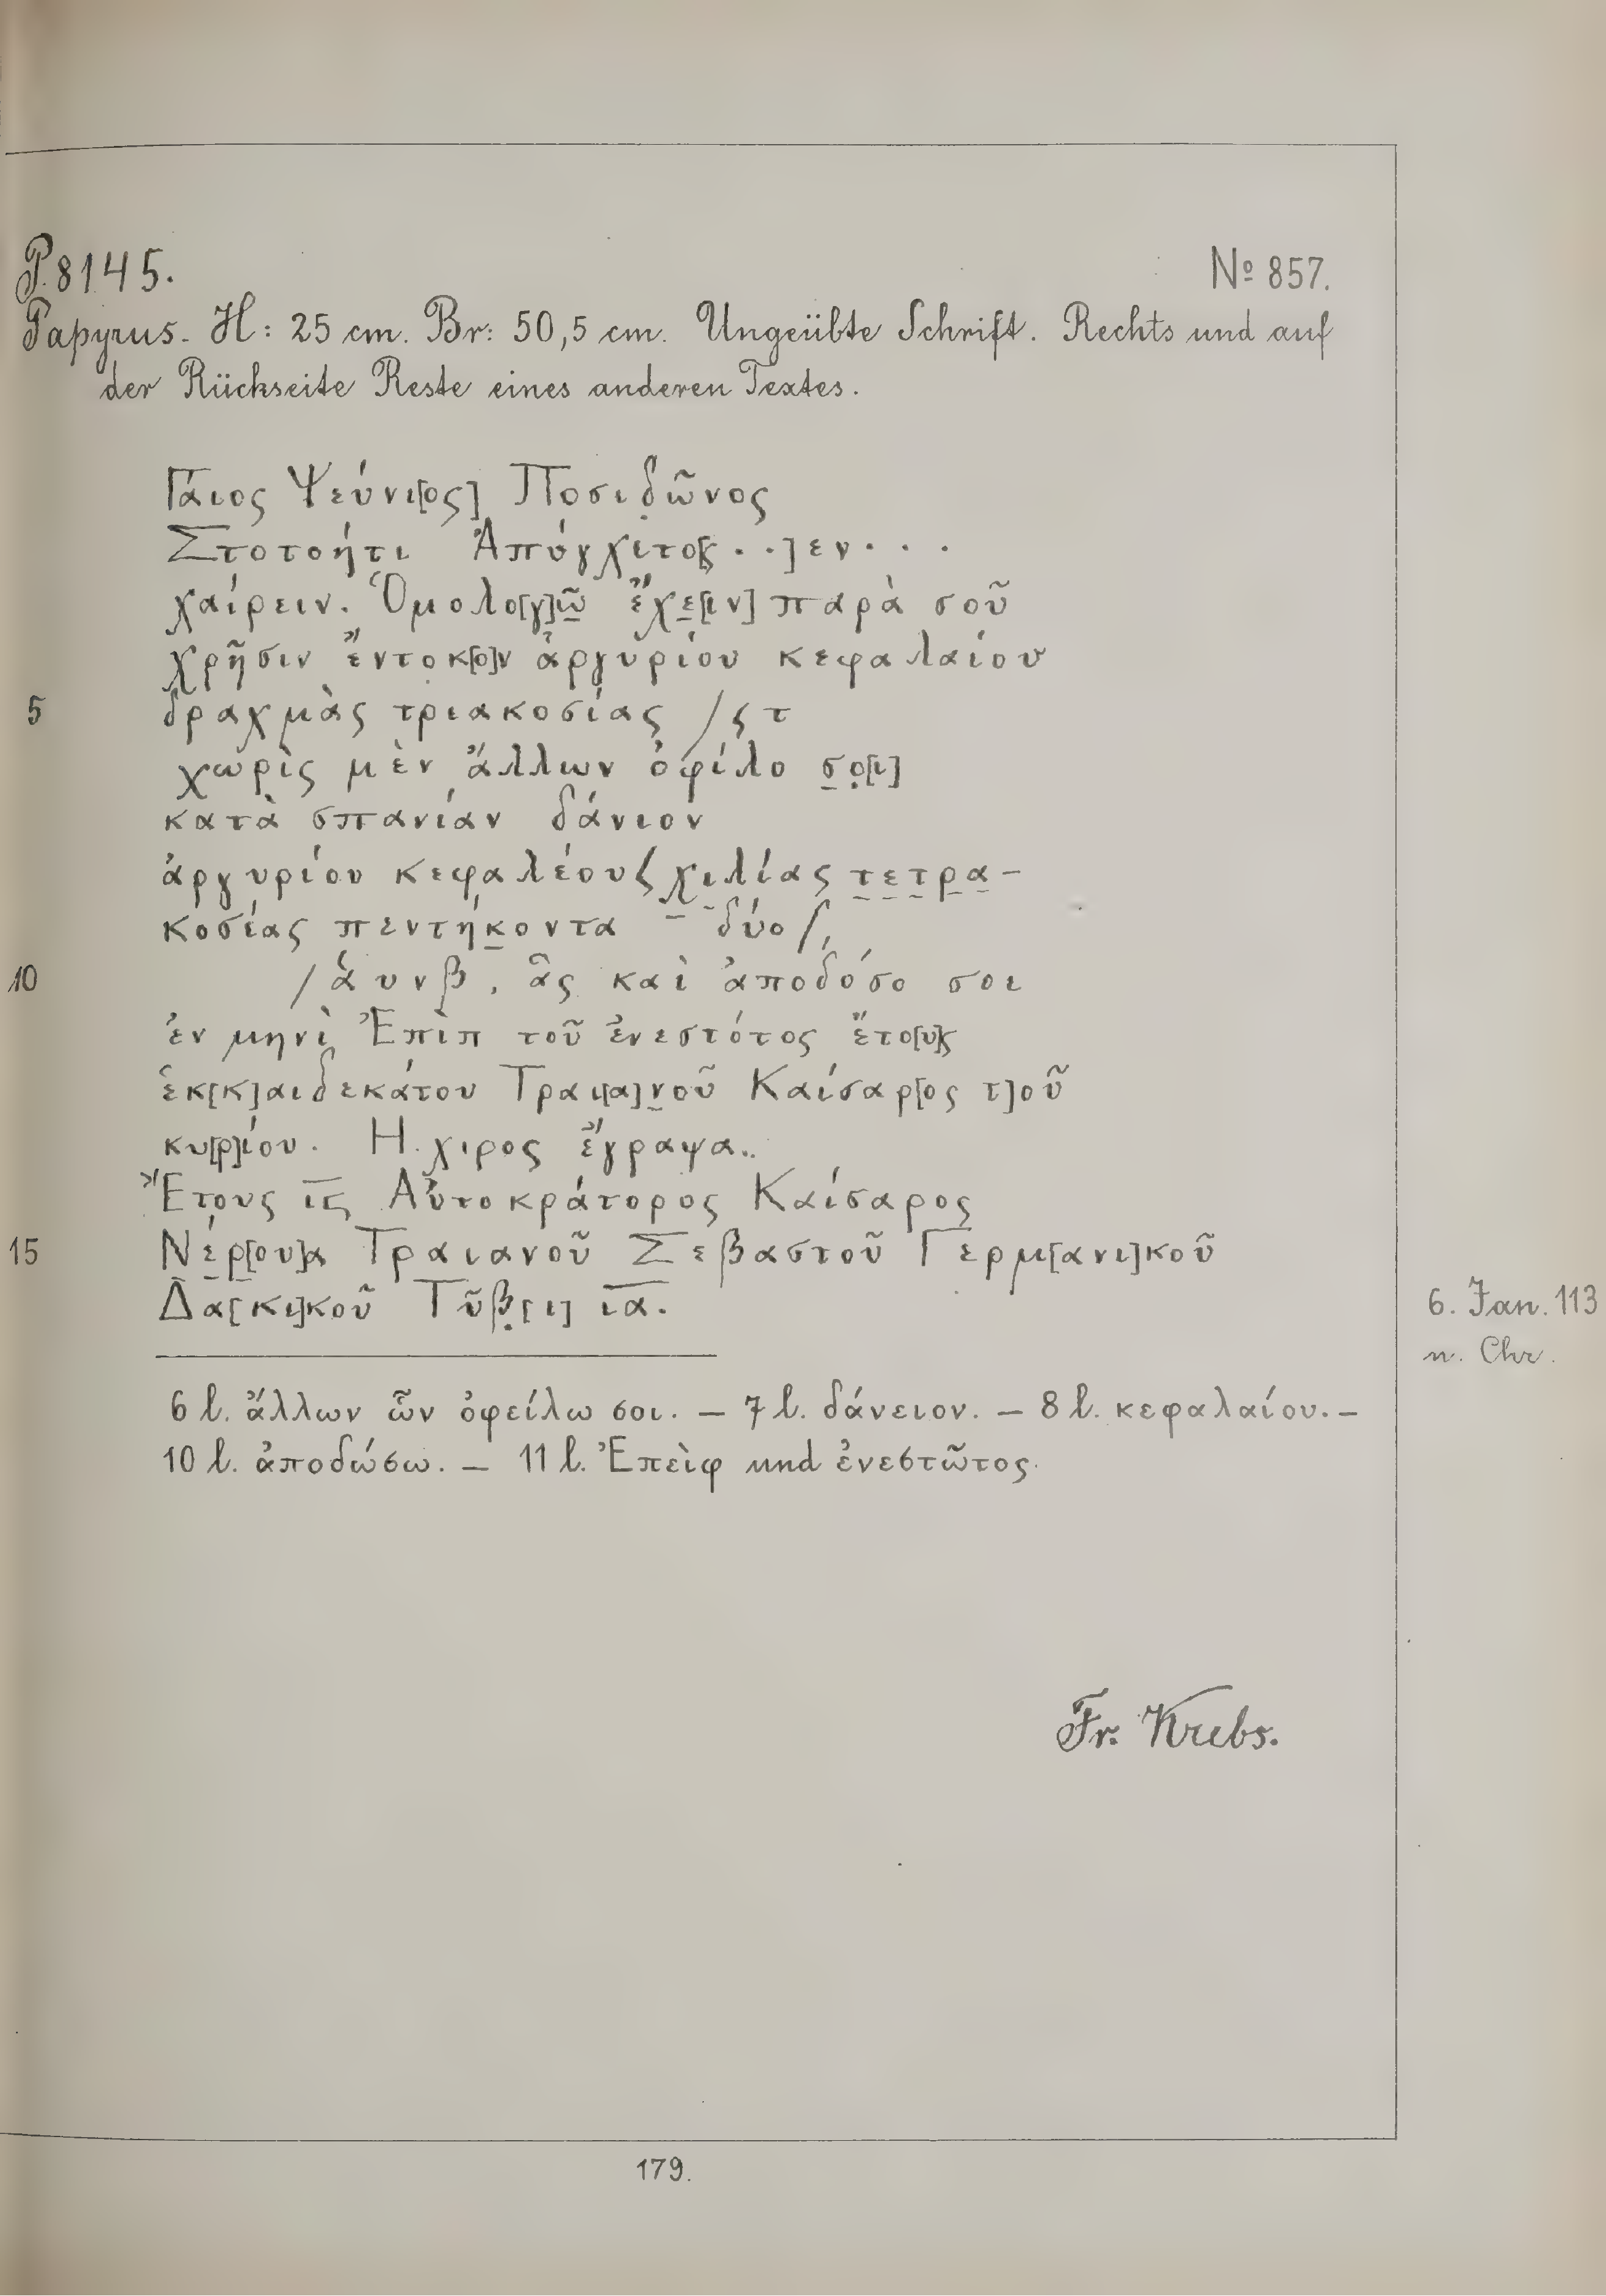 P. 8145.
№ 857.
Papyrus. H: 25 cm. Br: 50,5 cm. Ungeübte Schrift. Rechts und auf
der Rückseite Reste eines anderen Textes.
Γάιος Ψεύνι[ος] Ποσιδῶνος
Στοτοήτι Ἀπύγχιτο[ς . .]εν . . .
χαίρειν. Ὁμολο[γ]ῶ̲ ἔχε̲[ιν] παρὰ σοῦ
χρῆσιν ἔντοκ[ο]ν ἀργυρίου κεφαλαίου
5 δραχμὰς τριακοσίας /ϛ τ
χωρὶς μὲν ἄλλων ὀφίλο σ̲ο̣[ι]
κατὰ σπανίαν δάνιον
ἀργυρίου κεφαλέουϛ χ̲ι̲λίας τ̲ε̲τ̲ρ̲α̲-
κοσίας πεντήκ̲οντα δύο /,
10 /ἁ υνβ, ἃς καὶ ἀποδόσο σοι
ἐν μηνὶ Ἐπὶπ τοῦ ἐνεστότος ἔτο[υ]ς
ἑκ[κ]αιδεκάτου Τραι[α]ν̲οῦ Καίσαρ[ος τ]οῦ
κυ[ρ]ίου. Η. χιρος ἔγραψα..
Ἔτους ι̅ϛ̅ Αὐτοκράτορος Καίσαρος
15 Νέ̲ρ̲[ου]α Τραιανοῦ Σεβαστοῦ Γερμ[ανι]κοῦ
Δα[κι]κοῦ Τῦβ̣[ι] ι̅α̅.
6. Jan. 113
n. Chr.
6 l. ἄλλων ὧν ὀφείλω σοι. — 7 l. δάνειον. — 8 l. κεφαλαίου. —
10 l. ἀποδώσω. — 11 l. Ἐπεὶφ und ἐνεστῶτος.
Fr. Krebs.
179.